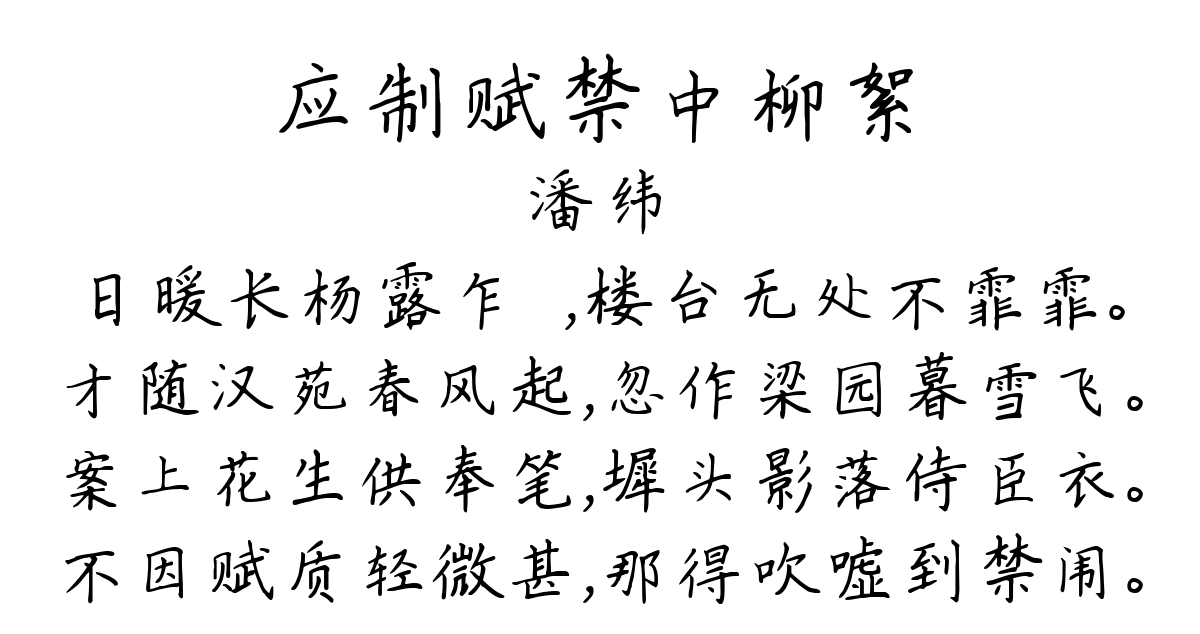 应制赋禁中柳絮
潘纬
日暖长杨露乍 ,楼台无处不霏霏。
才随汉苑春风起,忽作梁园暮雪飞。
案上花生供奉笔,墀头影落侍臣衣。
不因赋质轻微甚,那得吹嘘到禁闱。